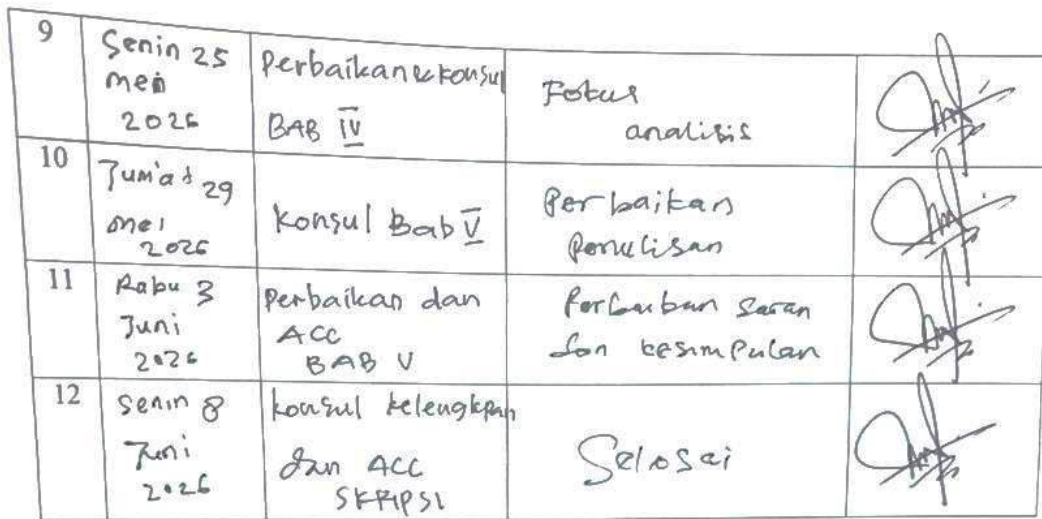 9
Senin 25
mei
2026
Perbaikan & konsul
BAB IV
Fokus
analisis
10
Jum'at 29
mei
2026
Konsul Bab V
Perbaikan
Penulisan
11
Rabu 3
Juni
2026
Perbaikan dan
ACC
BAB V
saran
dan kesimpulan
12
Senin 8
Juni
2026
konsul kelengkpan
dan ACC
SKRIPSI
Selesai